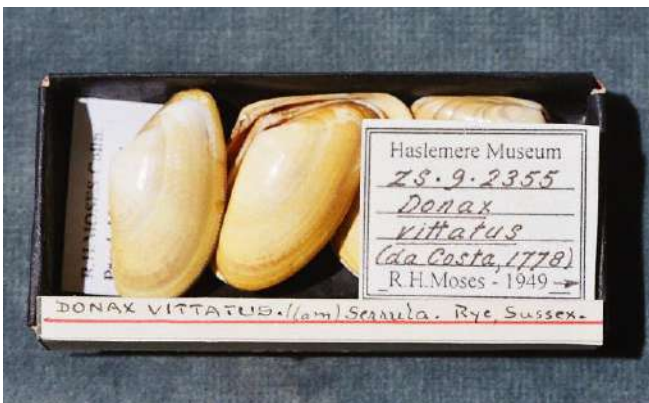 R.H.MOSES Colln.
Haslemere Museum
ZS.9.2355
Donax
vittatus
(da Costa, 1778)
R.H.Moses - 1949 →
DONAX VITTATUS. (Lam) Serrula. Rye, Sussex.